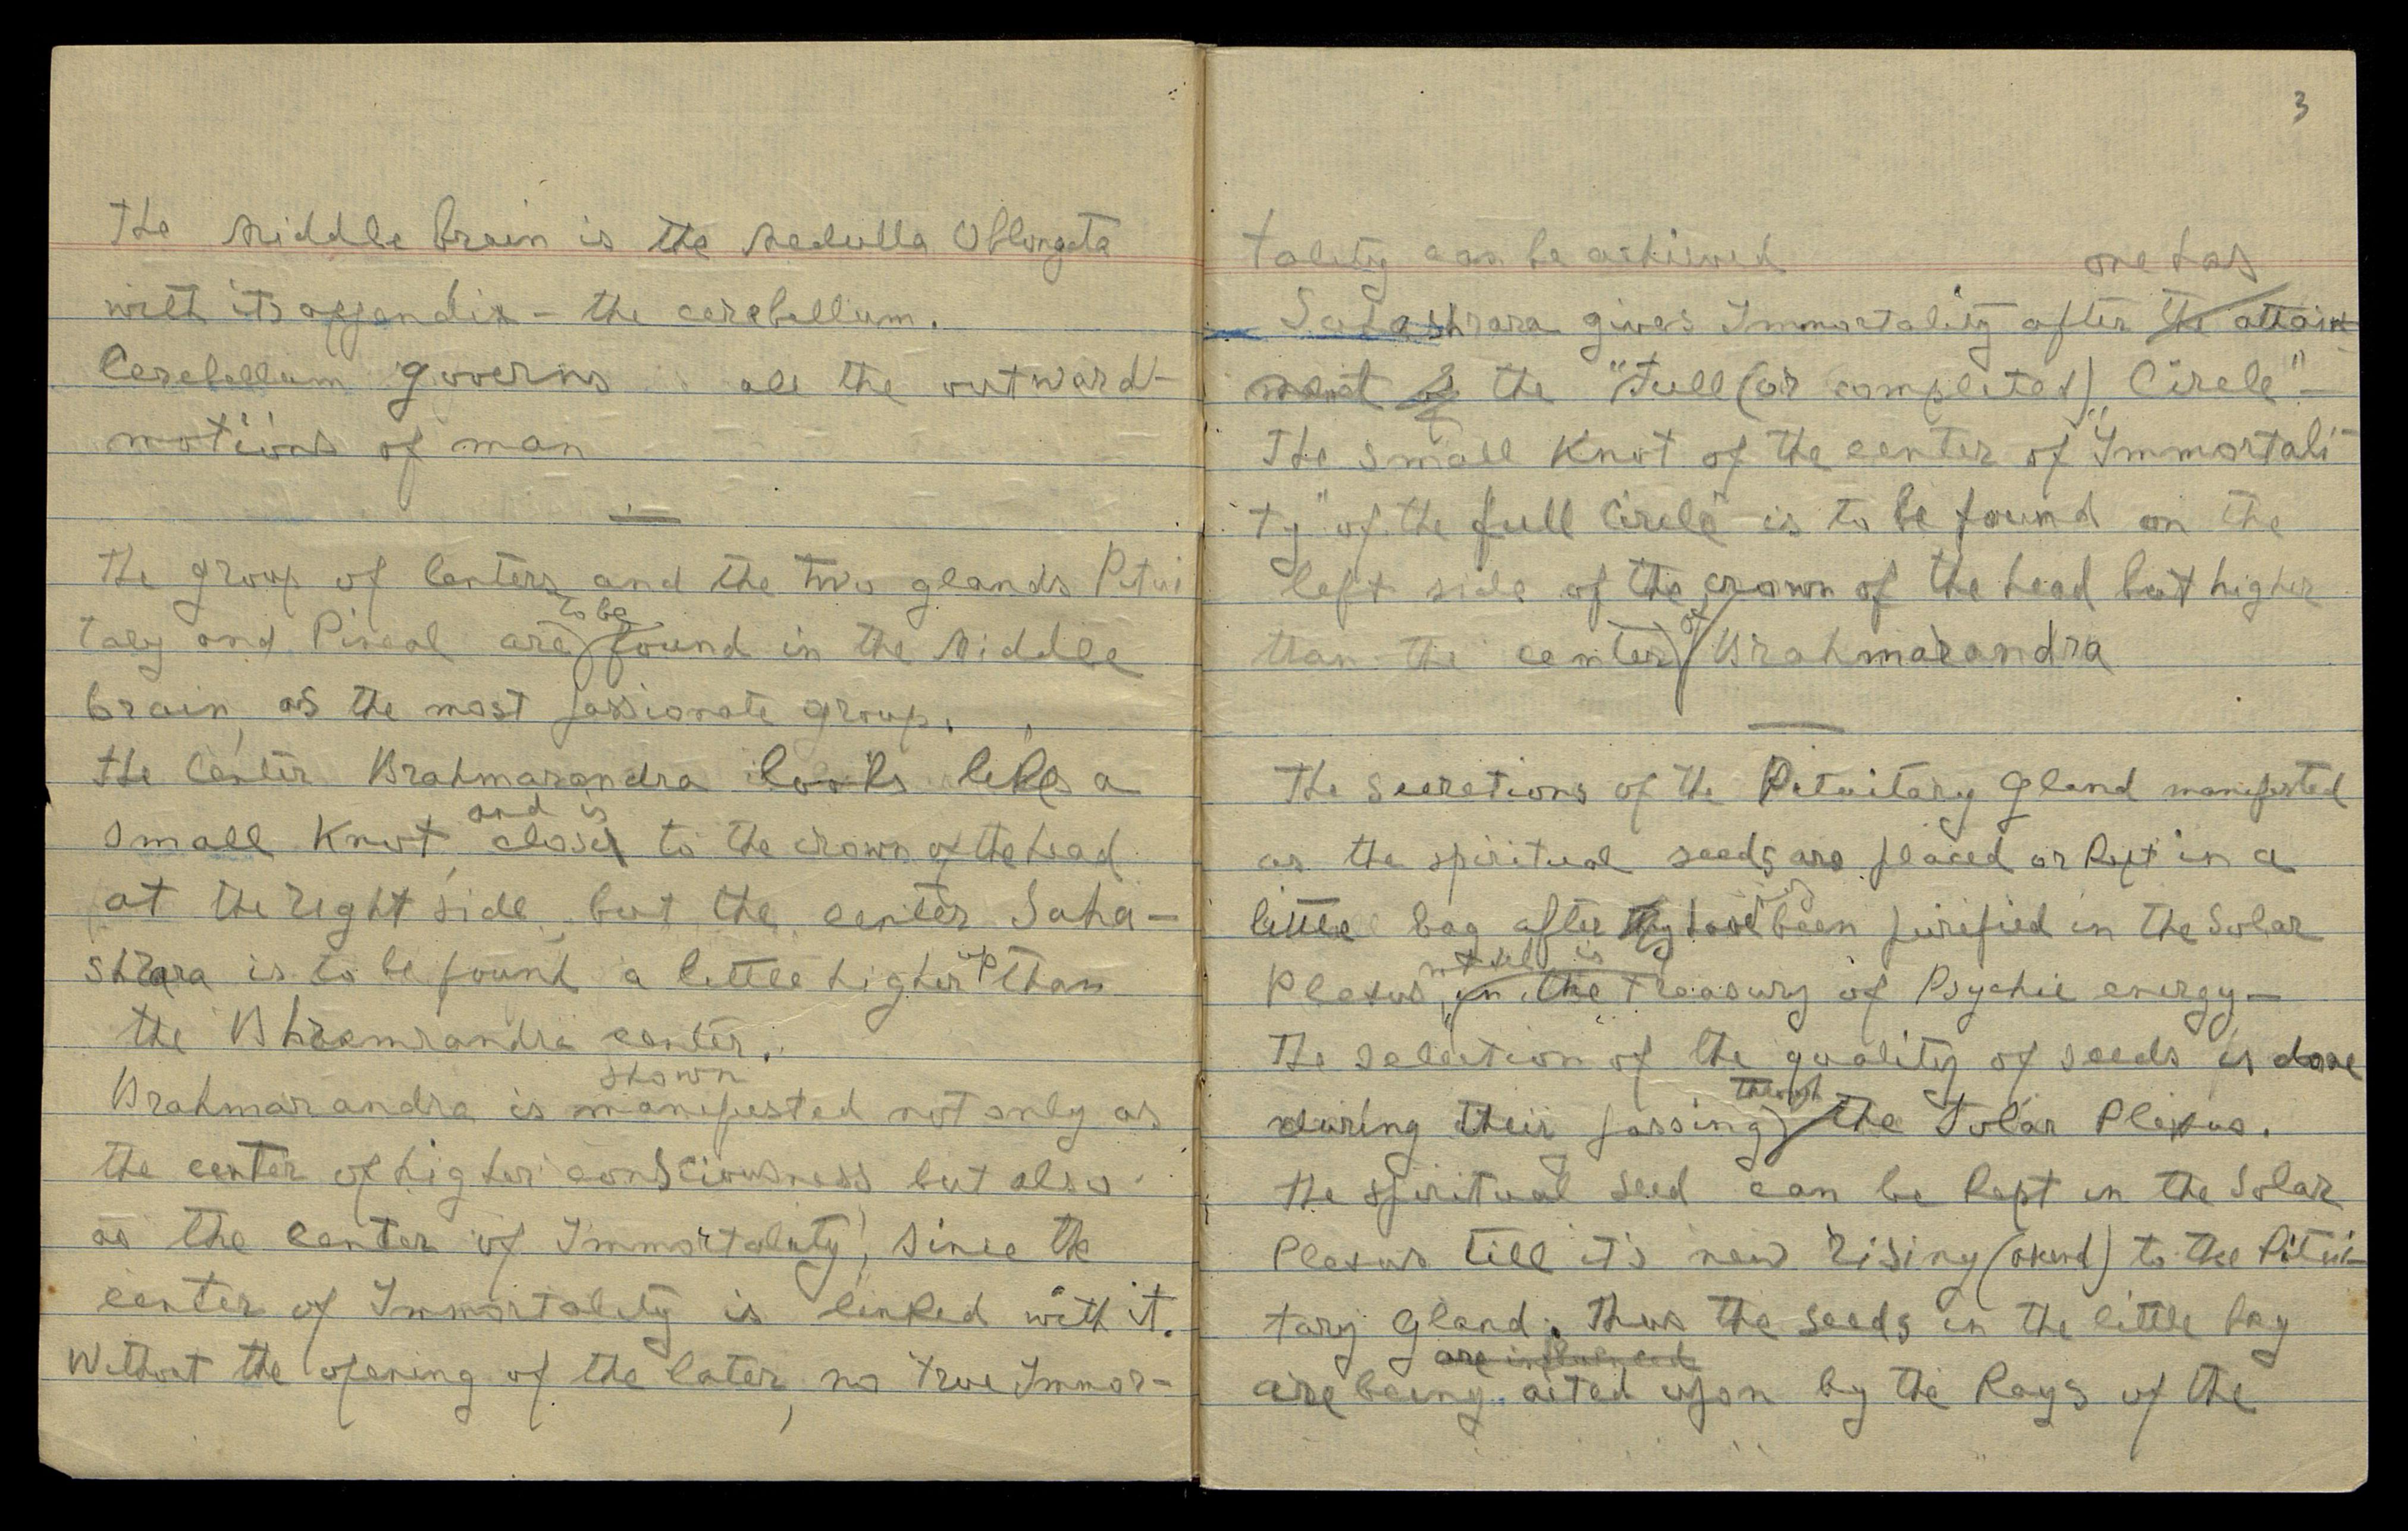 The Middle brain is the Medulla Oblongata
with its appendix - the cerebellum.
Cerebellum governs all the outward
motions of man
The group of Centers and the two glands Pitui
tary and Pineal are to be found in the Middle
brain, as the most passionate group.
The Center Brahmarandra looks like a
small Knot, and is closer to the crown of the head
at the right side, but the center Saha-
shrara is to be found a little higher up than
the Bhramrandra center.
shown
Brahmarandra is manifested not only as
the center of higher consciousness but also
as the center of Immortality, since the
center of Immortality is linked with it.
Without the opening of the later, no true Immor-
3
tality can be achieved
one has
Sahashrara gives Immortality after the attain
ment of the "Full (or completed) Circle" -
The small Knot of the center of "Immortali
ty" of the full Circle is to be found on the
left side of the crown of the head but higher
than the center of Brahmarandra
The secretions of the Pituitary Gland manifested
as the spiritual seeds are placed or kept in a
little bag after they have been purified in the Solar
is
Plexus, in the Treasury of Psychic energy -
The selection of the quality of seeds is done
during their passing through the Solar Plexus.
The spiritual seed can be kept in the Solar
Plexus till it's new rising to the Pitui-
tary Gland. Thus the seeds in the little bag
are influenced
are being acted upon by the Rays of the